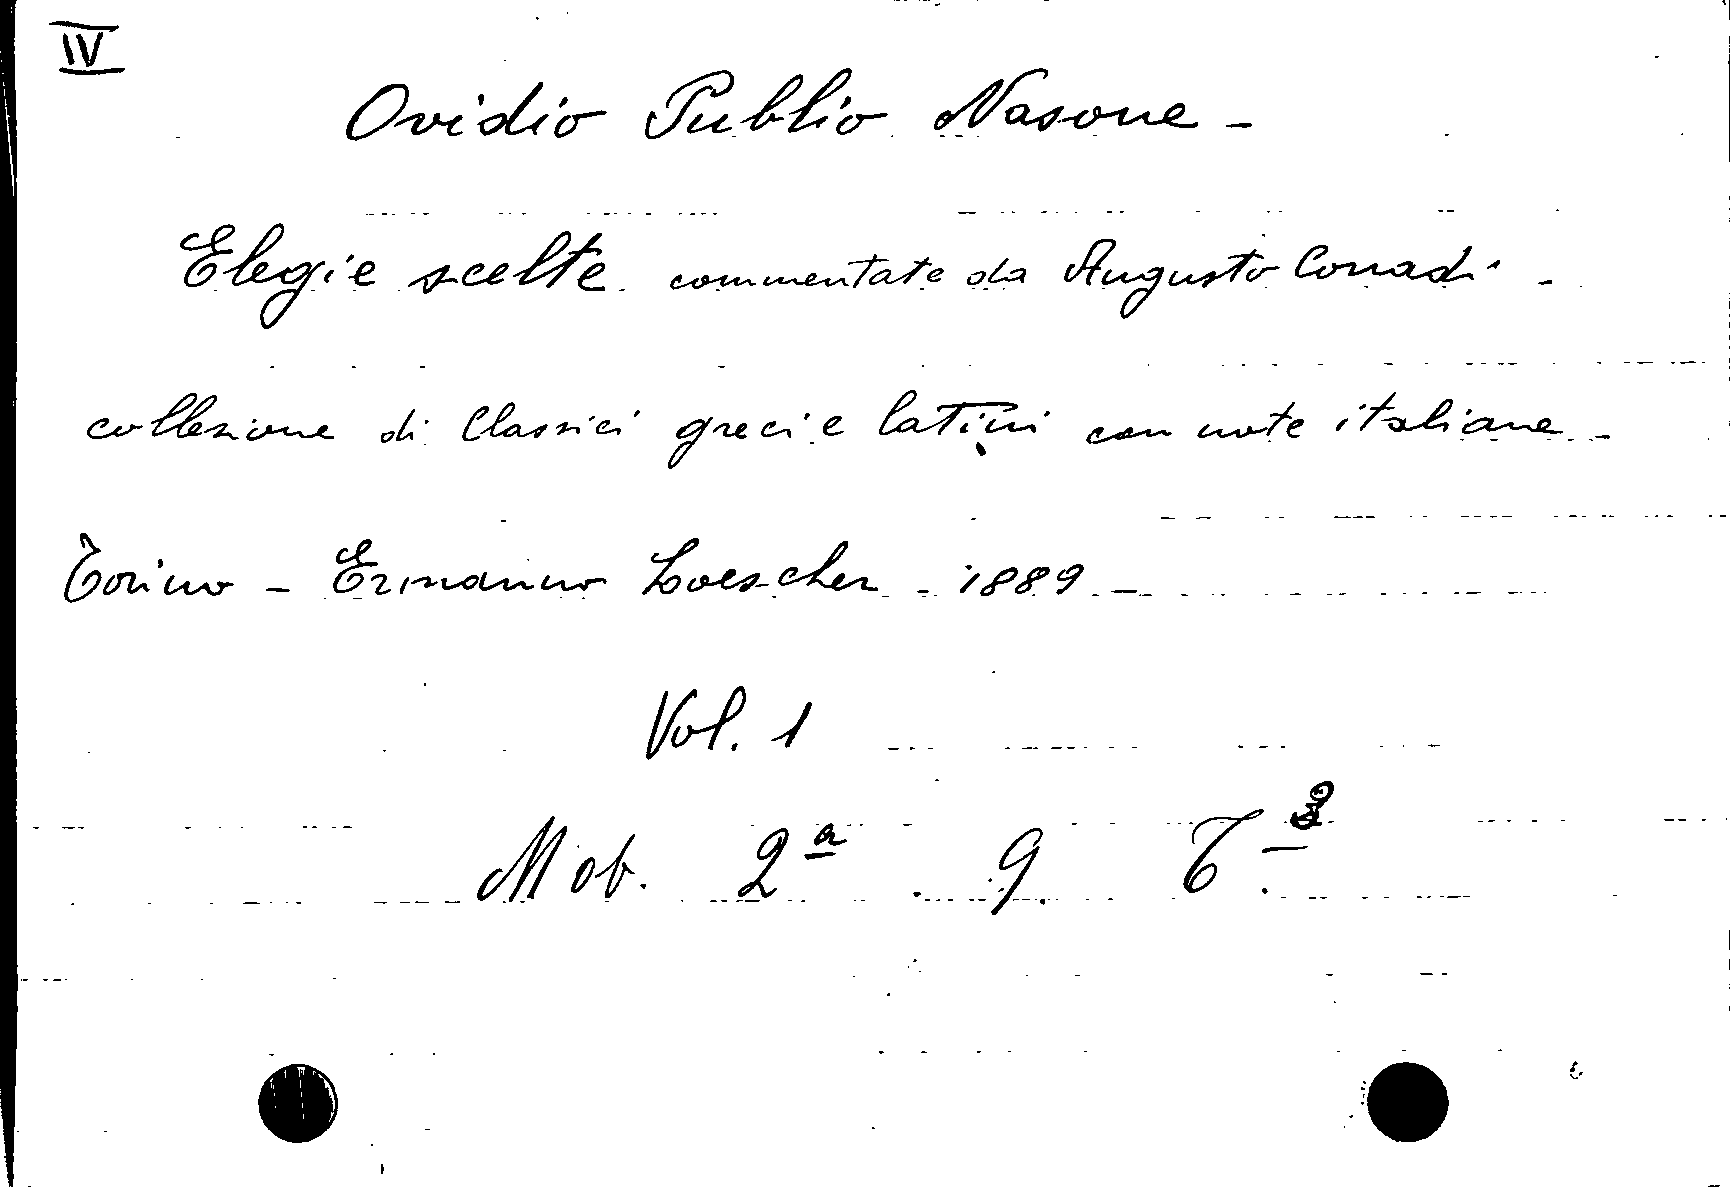 IV
Ovidio Publio Nasone -
Elegie scelte commentate da Augusto Corradi -
collezione di Classici greci e latini con note italiane -
Torino - Ermanno Loescher - 1889 -
Vol. 1
Mob. 2ª 9.